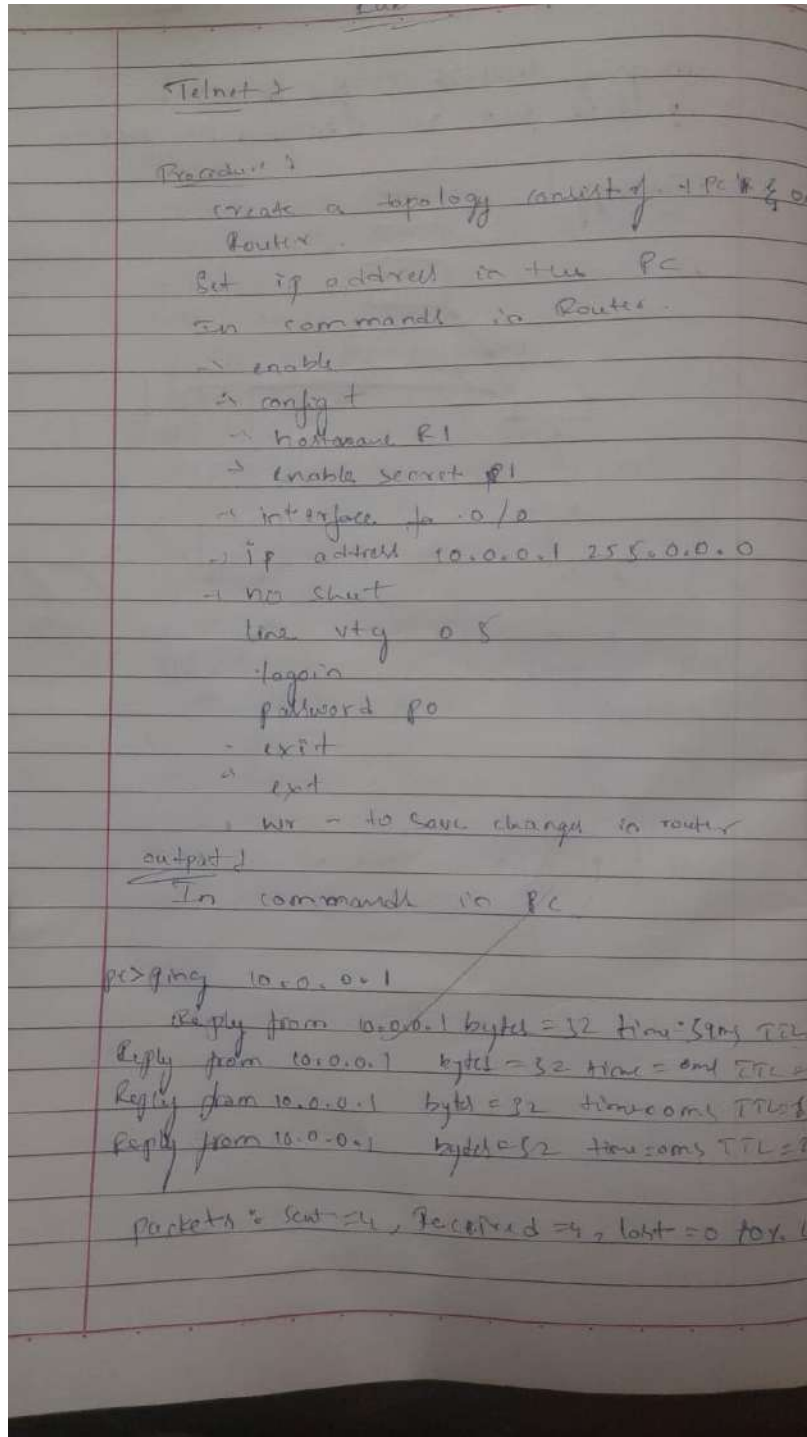 Telnet :
Procedure :
create a topology consist of 1 PC &
Router.
Set ip address in the PC
In commands in Router.
→ enable
→ config t
→ hostname R1
→ enable secret p1
→ interface fa 0/0
→ ip address 10.0.0.1 255.0.0.0
→ no shut
line vty 0 5
login
password p0
- exit
exit
wr - to save changes in router
output :
In commands in PC
pc>ping 10.0.0.1
Reply from 10.0.0.1 bytes = 32 TTL
Reply from 10.0.0.1 bytes = 32 time = 0ms TTL =
Reply from 10.0.0.1 bytes = 32 time=0ms TTL=
Reply from 10.0.0.1 bytes = 32 time=0ms TTL=
packets : sent =4, Received =4, lost =0